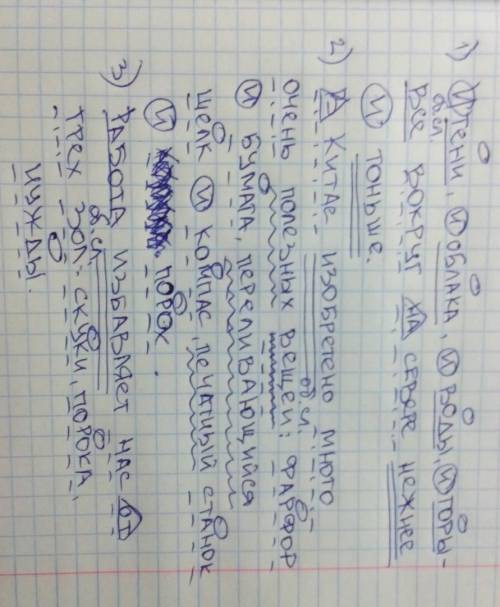 1) И тени, и облака, и воды, и горы -
об.сл.
все вокруг на севере нежнее
и тоньше.
2) В Китае изобретено много
об.сл.
очень полезных вещей: фарфор
и бумага, переливающийся
щелк и компас, печатный станок
и порох.
3) Работа избавляет нас от
об.сл.
трех зол: скуки, порока,
нужды.